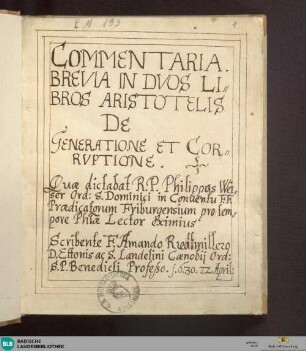 E M 193
1
COMMENTARIA
BREVIA IN DVOS LI⸗
BROS ARISTOTELIS
DE
GENERATIONE ET COR⸗
RVPTIONE.
Quæ dictabat R.P. Philippus
ser Ord: S. Dominici in Conventu F.F.
Prædicatorum Friburgensium pro tem⸗
pore Phiæ Lector Eximius
Scribente F. Amando Riedmillero
D. Ettonis ac S. Landelini Cænobij Ord:
S.P. Benedicti Professo. 1.6.30. 22. April:
BLB BADISCHE
LANDESBIBLIOTHEK